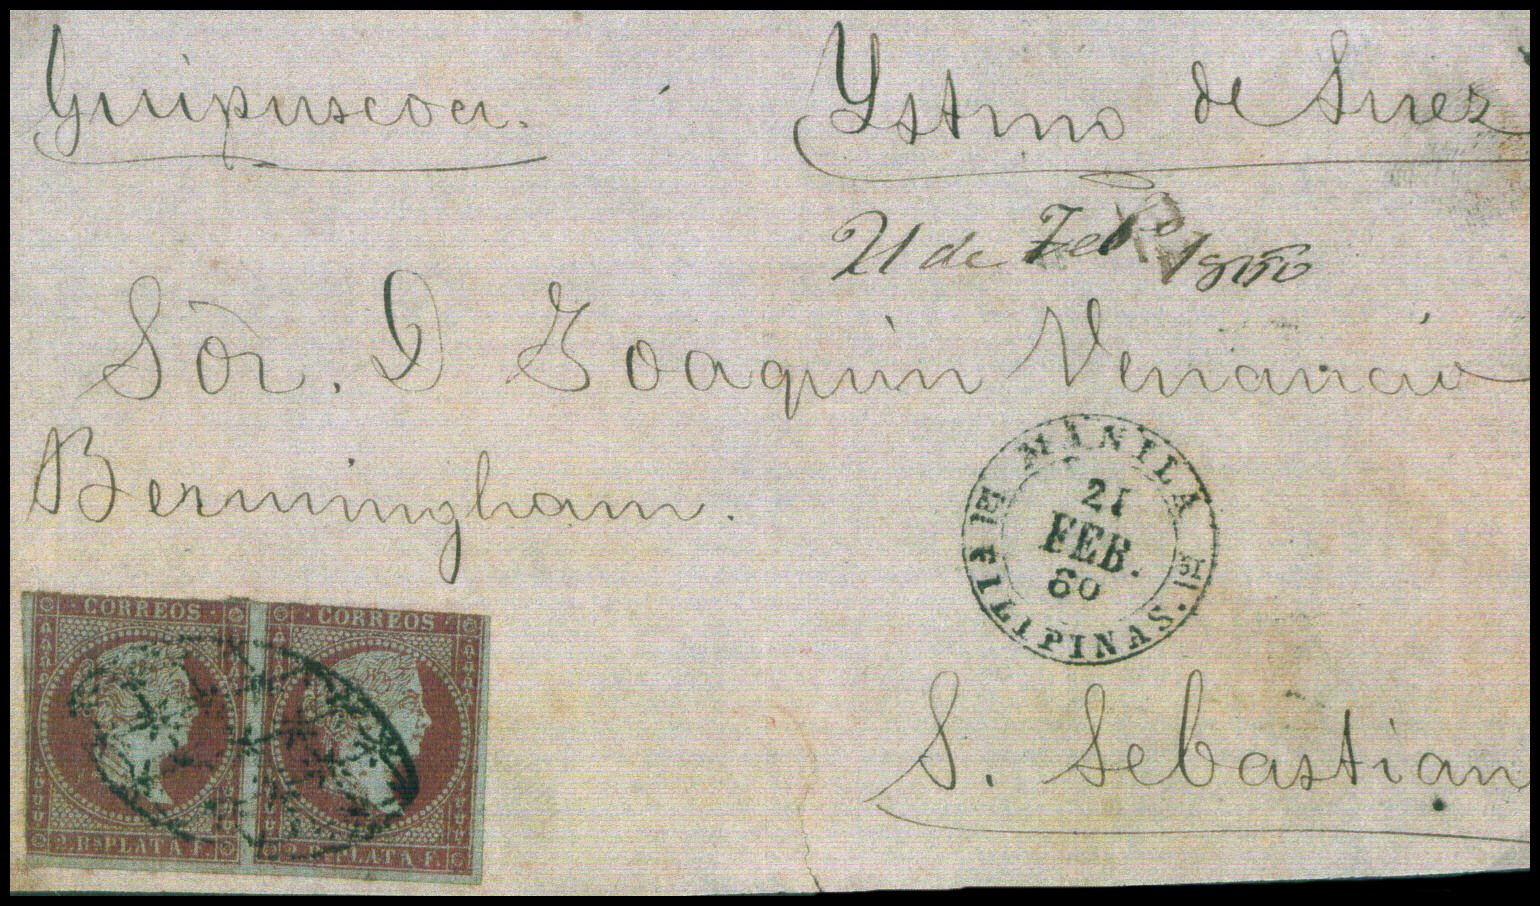 Guipuscoa.
Ystmo de Suez
21 de Feb.o 1860
Sōr. D Joaquin Venancio
Bermingham.
MANILA
21
FEB.
60
FILIPINAS.
S. Sebastian
· CORREOS ·
2 Rs PLATA F.
· CORREOS ·
2 Rs PLATA F.